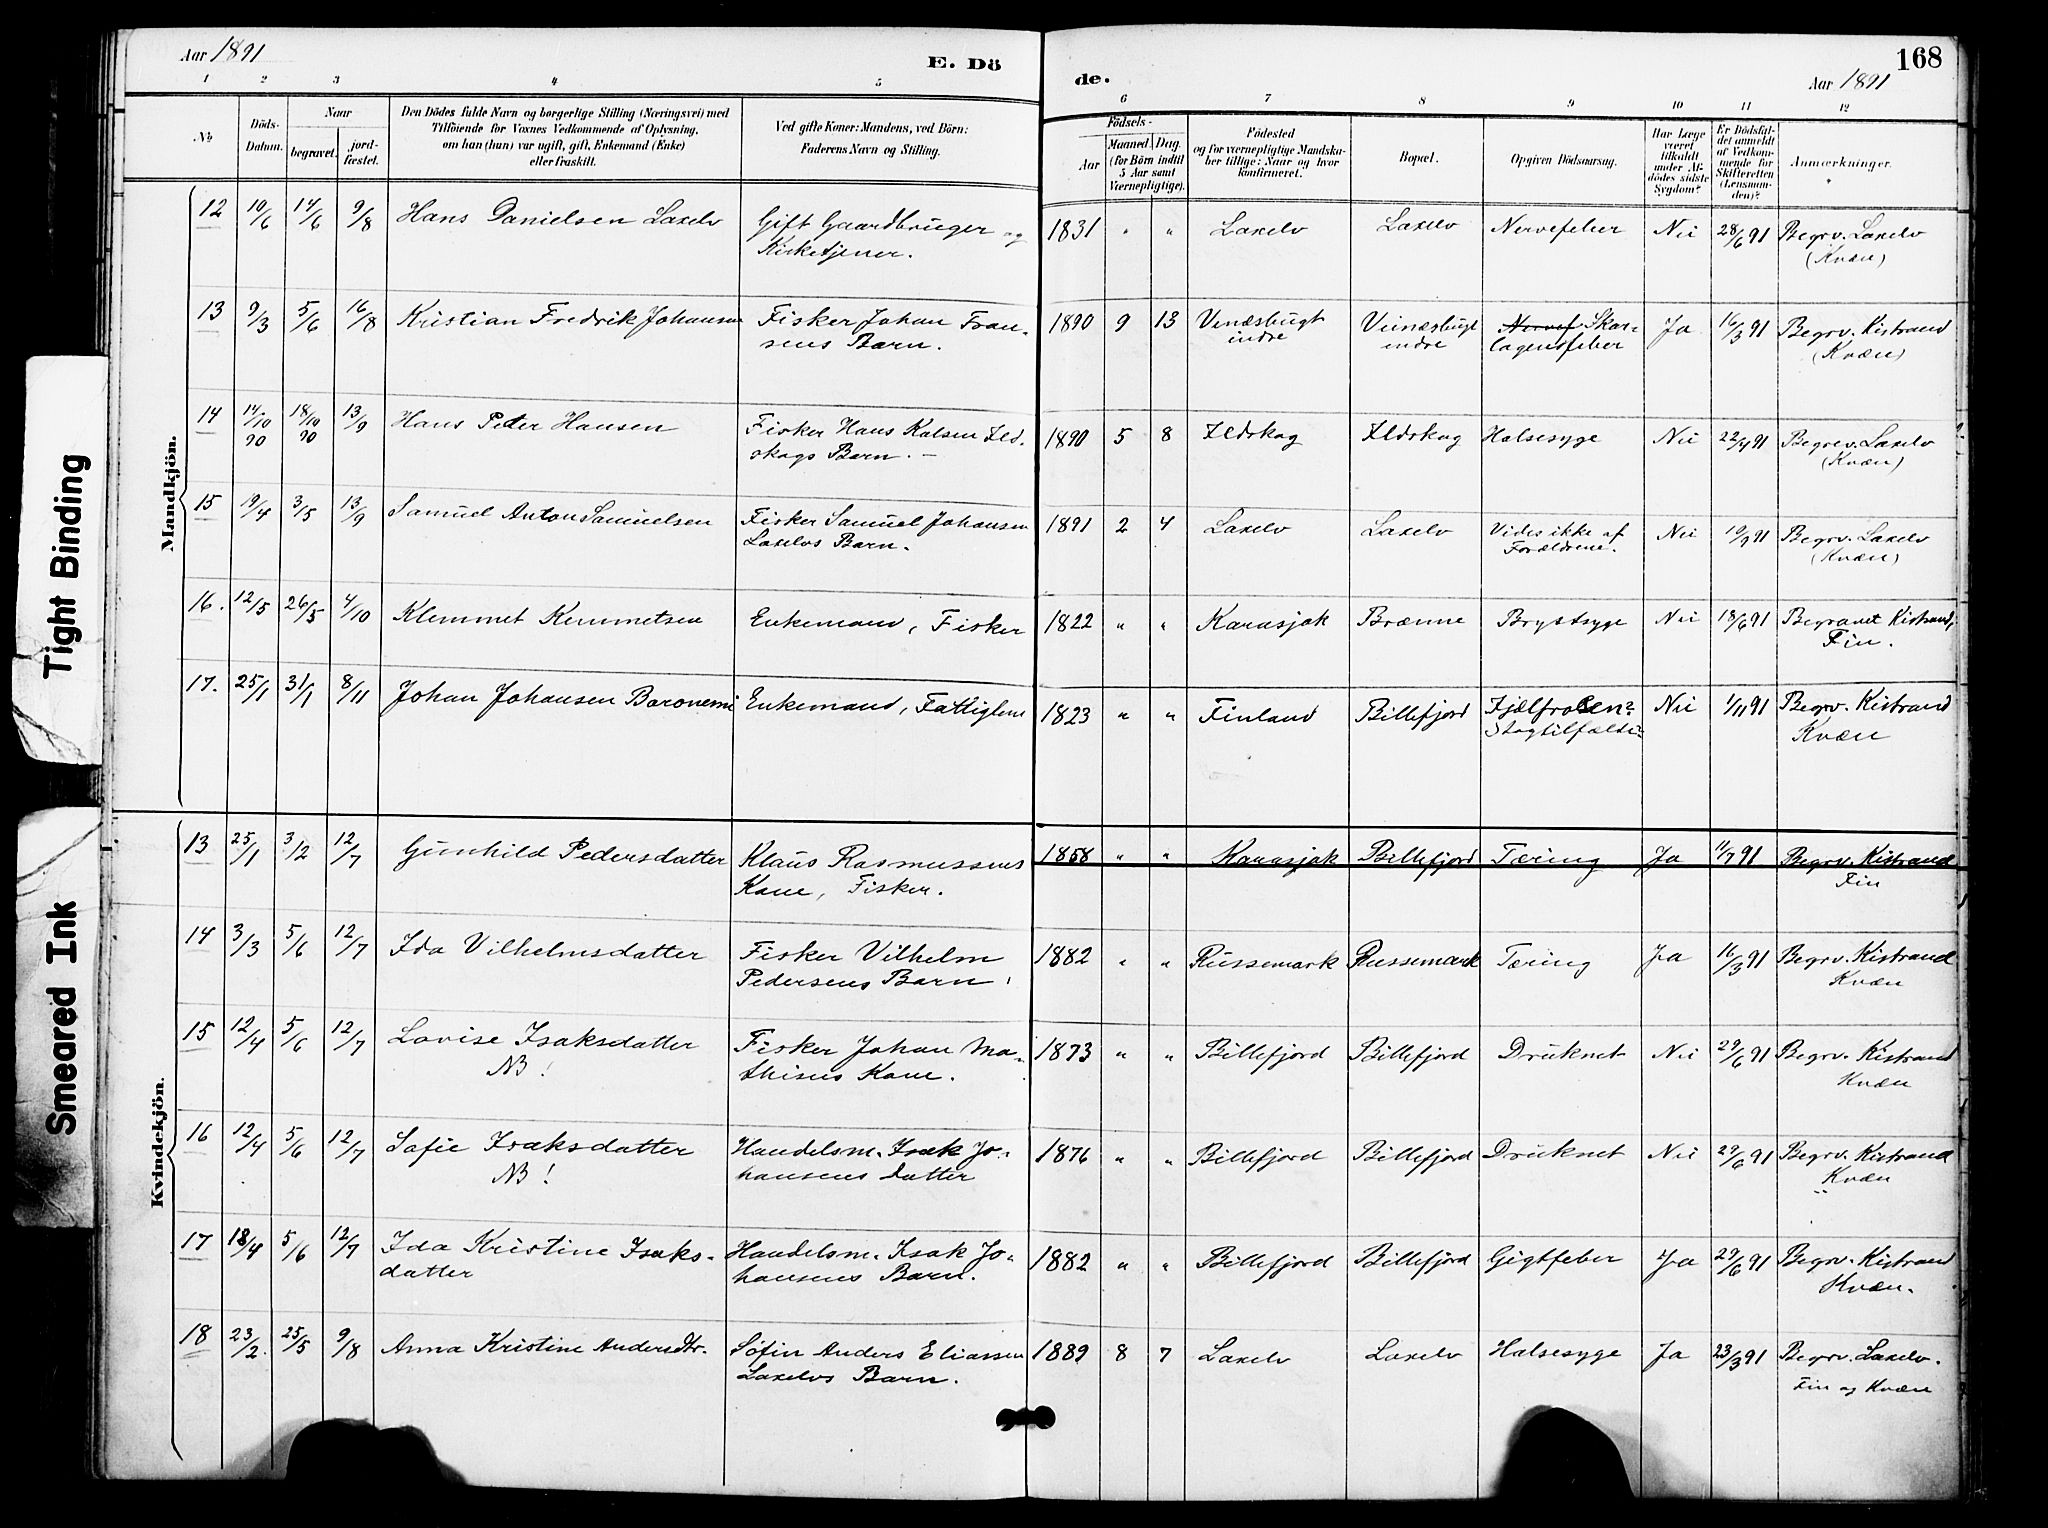 Aar 1891
E. Dö
de.
168
Aar 1891
1 2 3 4 5 6 7 8 9 10 11 12
No
Döds-
Datum.
Naar
begravet.
jord-
fæstet.
Den Dödes fulde Navn og borgerlige Stilling (Næringsvei) med
Tilföiende for Voxnes Vedkommende af Oplysning,
om han (hun) var ugift, gift, Enkemand (Enke)
eller fraskilt.
Ved gifte Koner: Mandens, ved Börn:
Faderens Navn og Stilling.
Födsels-
Aar
Maaned.
Dag.
(for Börn indtil
5 Aar samt
Værnepligtige).
Födested
og for værnepligtige Mandska-
ber tillige: Naar og hvor
konfirmeret.
Bopæl.
Opgiven Dödsaarsag.
Har Læge
været
tilkaldt
under Af-
dödes sidste
Sygdom?
Er Dödsfal-
det anmeldt
af Vedkom-
mende for
Skifteretten
(Lensman-
den)?
Anmærkninger.
Tight Binding
Smeared Ink
Mandkjön.
12 10/6 14/6 9/8 Hans Danielsen Laxelv Gift Gaardbruger og 1831 " " Laxelv Laxelv Nervefeber Nei 28/6 91 Begrv. Laxelv
Kirketjener. (Kvæn)
13 9/3 5/6 16/8 Kristian Fredrik Johansen Fisker Johan Fran- 1890 9 13 Vinæsbugt Viinæsbugt Nervef Skar- Ja 16/3 91 Begrv. Kistrand
sens Barn. indre indre lagensfeber (Kvæn)
14 14/10 90 18/10 90 13/9 Hans Peter Hansen Fisker Hans Kalsen Ild- 1890 5 8 Ildskog Ildskog Halsesyge Nei 22/4 91 Begrv. Laxelv
skogs Barn. — (Kvæn)
15 19/4 3/5 13/9 Samuel Anton Samuelsen Fisker Samuel Johansen 1891 2 4 Laxelv Laxelv Vides ikke af Nei 10/9 91 Begrv. Laxelv
Laxelvs Barn. Forældrene. (Kvæn)
16. 12/5 26/5 4/10 Klemmet Kemmetsen Enkemand, Fisker 1822 " " Karasjok Brænne Brystsyge Nei 18/6 91 Begravet Kistrand,
Fin.
17. 25/1 31/1 8/11 Johan Johansen Baronemi Enkemand, Fattiglem 1823 " " Finland Billefjord Fjælfrosen? Nei 1/11 91 Begrv. Kistrand
Slagtilfælde Kvæn
Kvindekjön.
13 25/1 3/2 12/7 Gunhild Pedersdatter Klaus Rasmussens 1858 " " Karasjok Billefjord Tæring Ja 11/7 91 Begrv. Kistrand
Kone, Fisker. Fin
14 3/3 5/6 12/7 Ida Vilhelmsdatter Fisker Vilhelm 1882 " " Russemark Russemark Tæring Ja 16/3 91 Begrv. Kistrand
Pedersens Barn. Kvæn
15 12/4 5/6 12/7 Lovise Isaksdatter Fisker Johan Ma- 1873 " " Billefjord Billefjord Druknet Nei 29/6 91 Begrv. Kistrand
NB! thisens Kone. Kvæn
16 12/4 5/6 12/7 Safie Isaksdatter Handelsm. Isak Jo- 1876 " " Billefjord Billefjord Druknet Nei 29/6 91 Begrv. Kistrand
NB! hansens Datter Kvæn
17 18/4 5/6 12/7 Ida Kristine Isaks- Handelsm. Isak Jo- 1882 " " Billefjord Billefjord Gigtfeber Ja 29/6 91 Begrv. Kistrand
datter hansens Barn. Kvæn.
18 23/2. 25/5 9/8 Anna Kristine Andersdtr. Söfin Anders Eliassen 1889 8 7 Laxelv Laxelv Halsesyge Ja 23/3 91 Begrv. Laxelv.
Laxelvs Barn. Fin og Kvæn